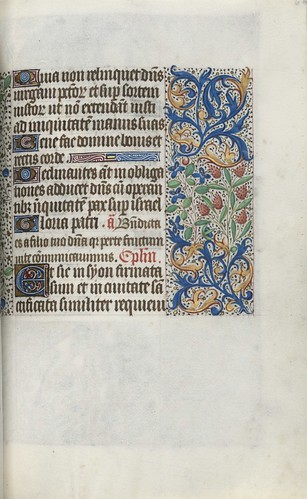 Quia non relinquet dñs
virgam pctor̃ et sup sortem
iustor̃ ut nõ extendãt iusti
ad iniquitatem manus suas
Bene fac domine bonis et
rectis corde
Declinantes aũt in obliga
tiones adducet dñs cũ operan
tibꝫ iniquitatẽ pax sup israel
Gloria patri. ã Benedicta
es a filio tuo dñā qꝛ per te fructum
vite cõmunicauimus. Cplm̃
Et sic in syon firmata
sum et in ciuitate sã
ctificata similiter requieui